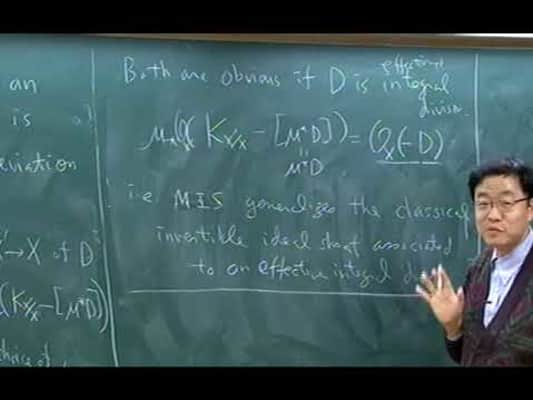 an
is
eviation
X'→X of D
(K_{X'/X} − [μ*D])
choice of
Both are obvious if D is effective integral divisor.
μ_*O_{X'}(K_{X'/X} − [μ*D]) = O_X(−D)
μ*D
i.e. MIS generalizes the classical
invertible ideal sheaf associated
to an effective integral